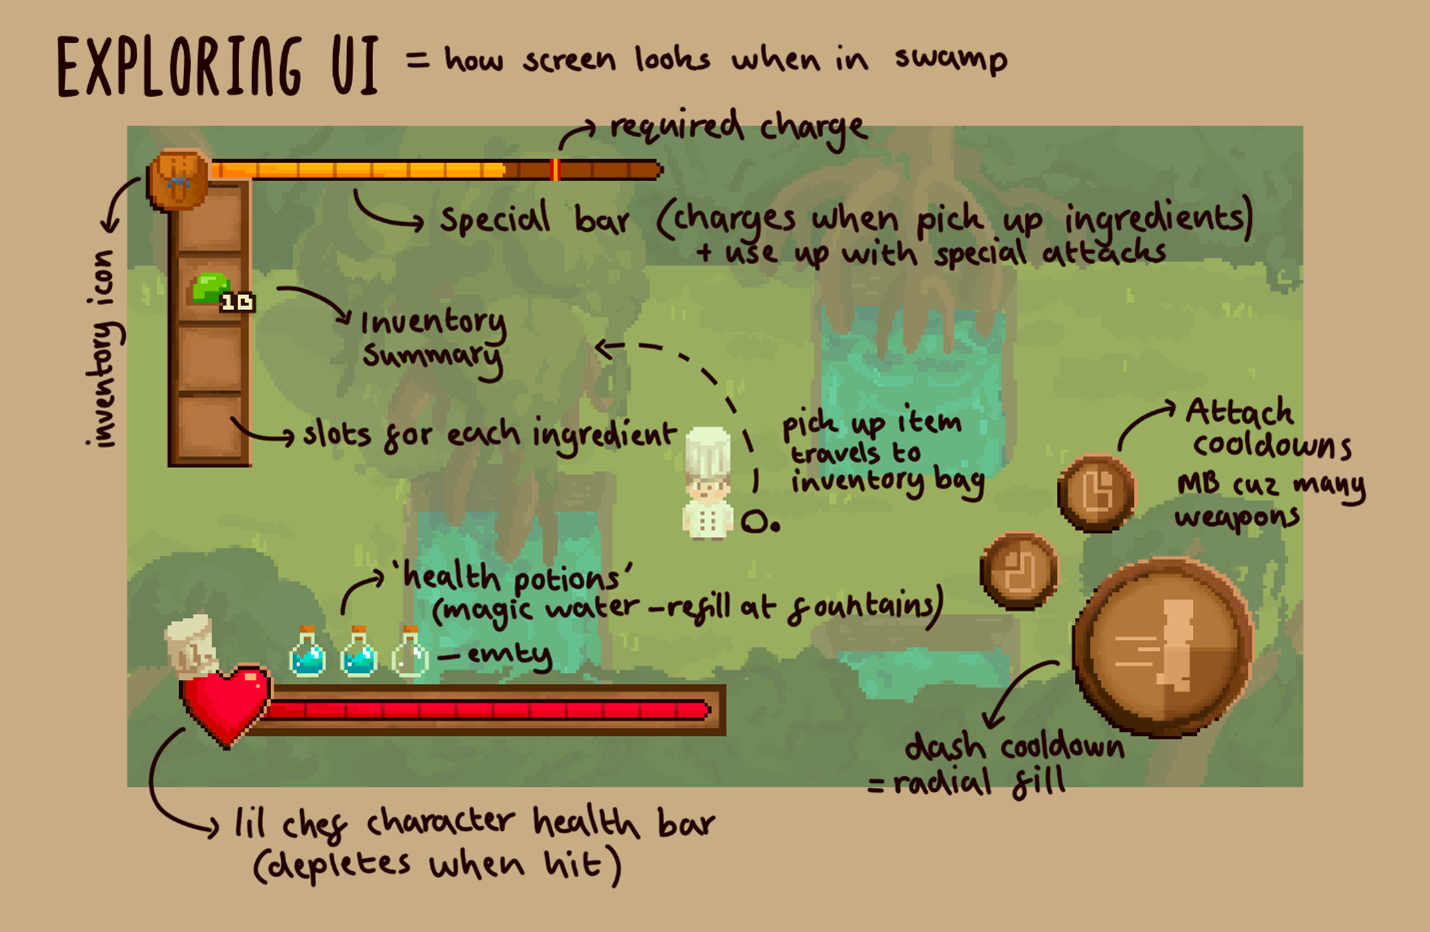 EXPLORING UI = how screen looks when in swamp
required charge
Special bar (charges when pick up ingredients)
+ use up with special attacks
inventory icon
10
Inventory
Summary
slots for each ingredient
pick up item
travels to
inventory bag
Attack
cooldowns
MB cuz many
weapons
'health potions'
(magic water - refill at fountains)
- emty
dash cooldown
= radial fill
lil chef character health bar
(depletes when hit)